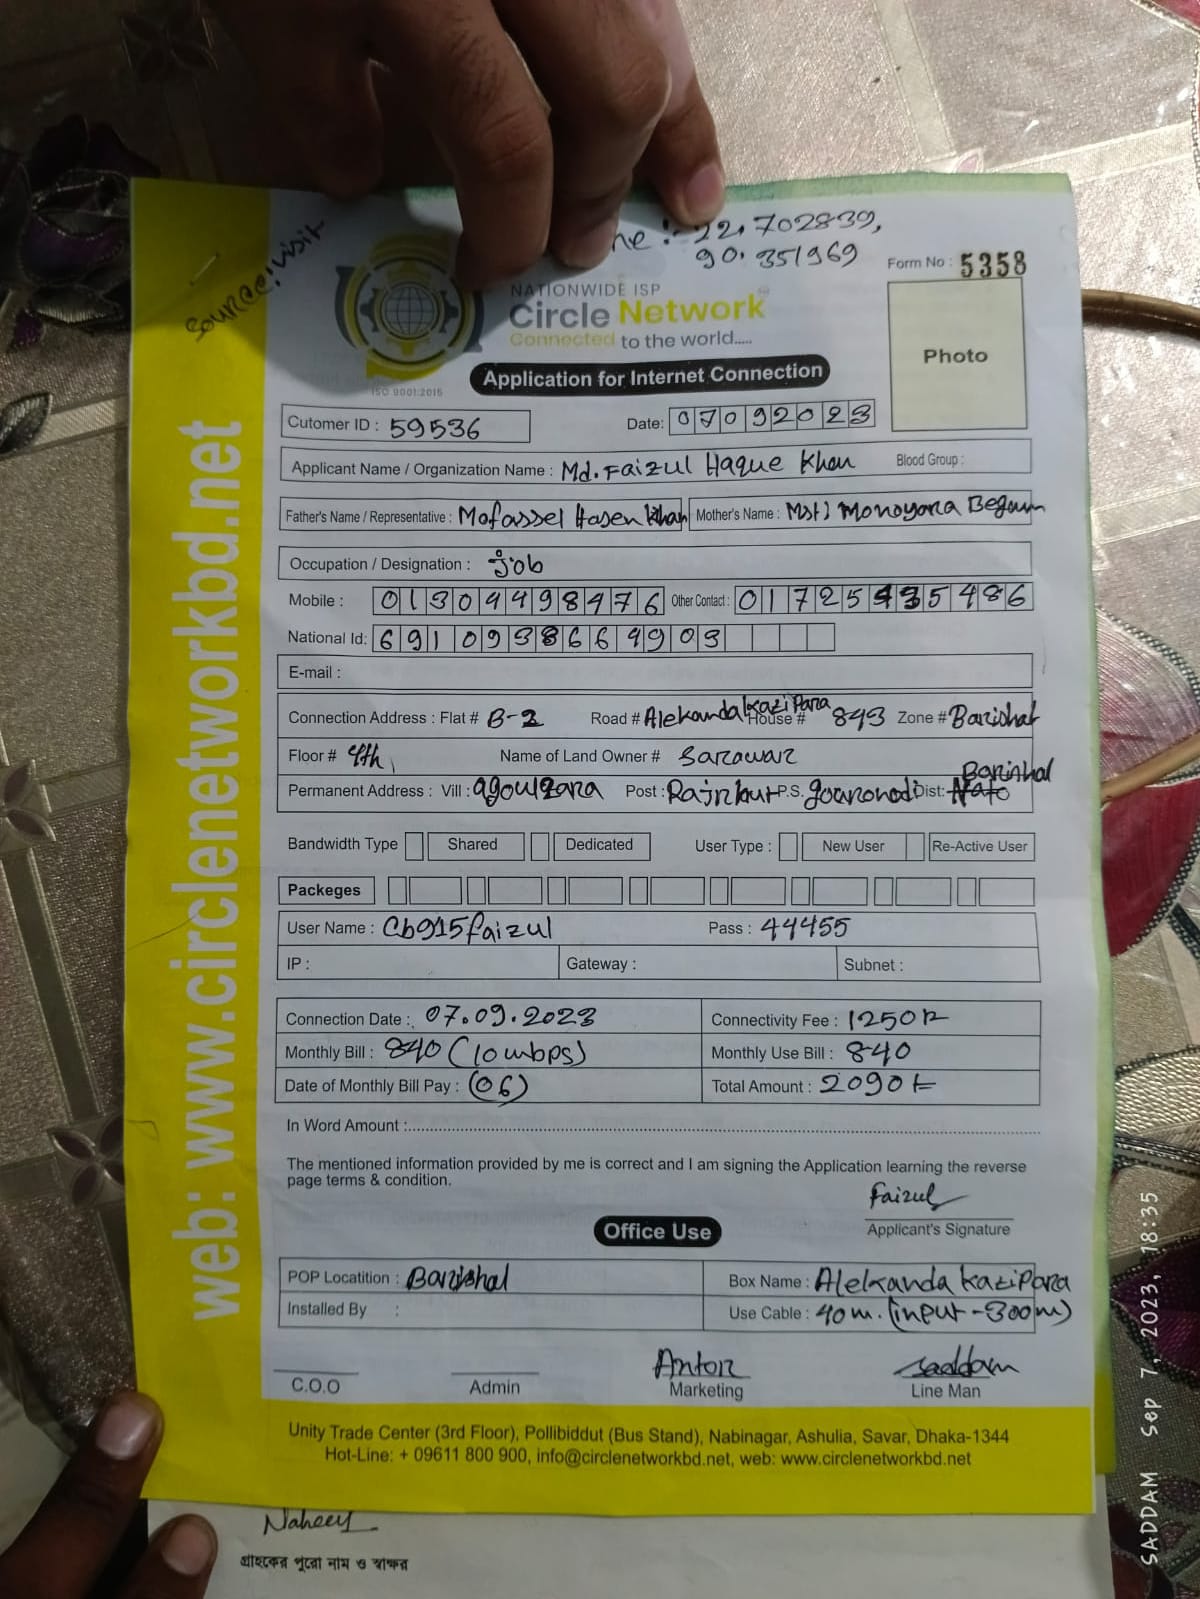 source: visit
ne :- 22.702839,
90.351969
Form No : 5358
NATIONWIDE ISP
Circle Network
Connected to the world.....
ISO 9001:2015
Application for Internet Connection
Photo
Cutomer ID : 59536 Date: 07092023
Applicant Name / Organization Name : Md. Faizul Haque Khan Blood Group :
Father's Name / Representative : Mofassel Hasen Khan Mother's Name : Mst) Monoyara Begum
Occupation / Designation : job
Mobile : 01304498476 Other Contact : 01725435486
National Id: 6910938664903
E-mail :
Connection Address : Flat # B-2 Road # Alekanda Kazi Para House # 843 Zone # Barishal
Floor # 4th Name of Land Owner # Sarawar
Permanent Address : Vill : Post : P.S. gouronodi Dist: Barishal
Bandwidth Type Shared Dedicated User Type : New User Re-Active User
Packeges
User Name : Cb915faizul Pass : 44455
IP : Gateway : Subnet :
Connection Date : 07.09.2023 Connectivity Fee : 1250
Monthly Bill : 840 (10 mbps) Monthly Use Bill : 840
Date of Monthly Bill Pay : (06) Total Amount : 2090
In Word Amount :
The mentioned information provided by me is correct and I am signing the Application learning the reverse
page terms & condition.
Faizul
Applicant's Signature
Office Use
POP Locatition : Barishal Box Name : Alekanda Kazi Para
Installed By : Use Cable : 40 m. (input - 300m)
Anton Saddam
C.O.O Admin Marketing Line Man
Unity Trade Center (3rd Floor), Pollibiddut (Bus Stand), Nabinagar, Ashulia, Savar, Dhaka-1344
Hot-Line: + 09611 800 900, info@circlenetworkbd.net, web: www.circlenetworkbd.net
web: www.circlenetworkbd.net
গ্রাহকের পুরো নাম ও স্বাক্ষর
SADDAM Sep 7, 2023, 18:35